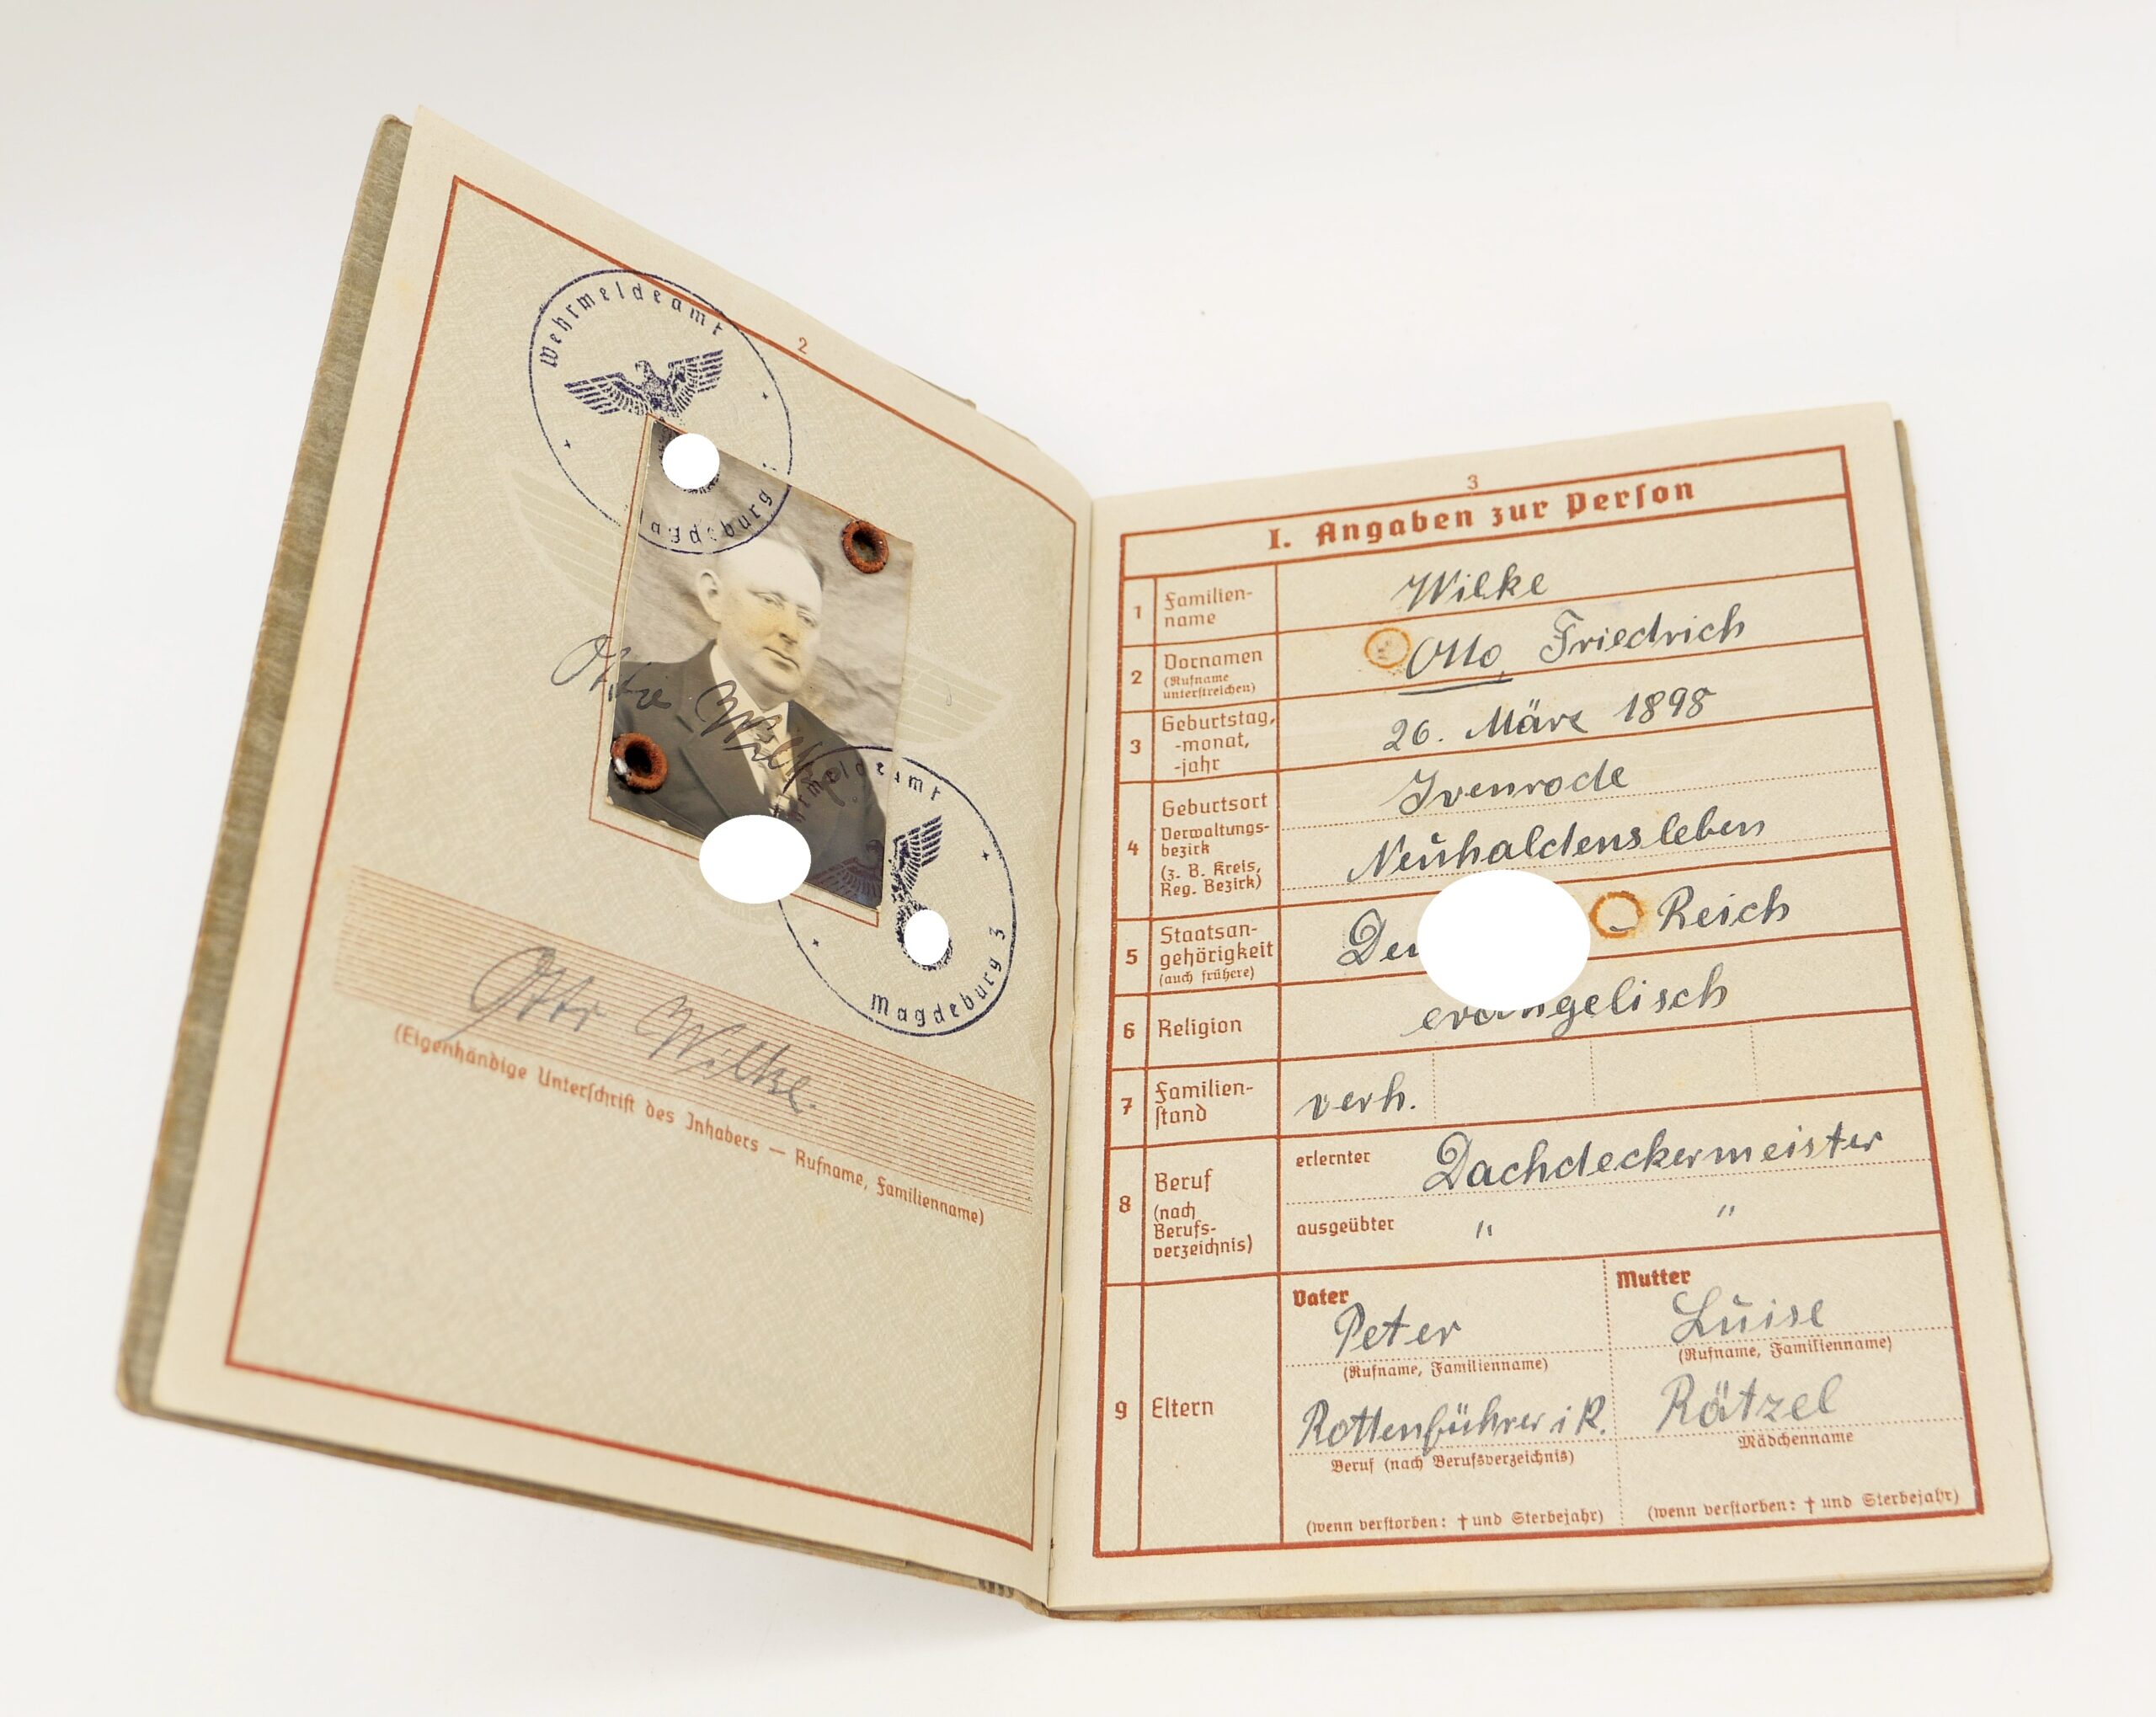 2
Wehrmeldeamt
agdeburg
Otto Wilke
meldeamt
Magdeburg 3
Otto Wilke.
(Eigenhändige Unterschrift des Inhabers — Rufname, Familienname)
3
I. Angaben zur Person
1 Familien-
name
Wilke
2 Vornamen
(Rufname
unterstreichen)
Otto Friedrich
3 Geburtstag,
-monat,
-jahr
26. März 1898
4 Geburtsort
Verwaltungs-
bezirk
(z. B. Kreis,
Reg. Bezirk)
Ivenrode
Neuhaldensleben
5 Staatsan-
gehörigkeit
(auch frühere)
Reich
6 Religion
evangelisch
7 Familien-
stand
verh.
8 Beruf
(nach
Berufs-
verzeichnis)
erlernter Dachdeckermeister
ausgeübter " "
9 Eltern
Vater
Peter
(Rufname, Familienname)
Rottenführer i R.
Beruf (nach Berufsverzeichnis)
(wenn verstorben: † und Sterbejahr)
Mutter
Luise
(Rufname, Familienname)
Rätzel
Mädchenname
(wenn verstorben: † und Sterbejahr)